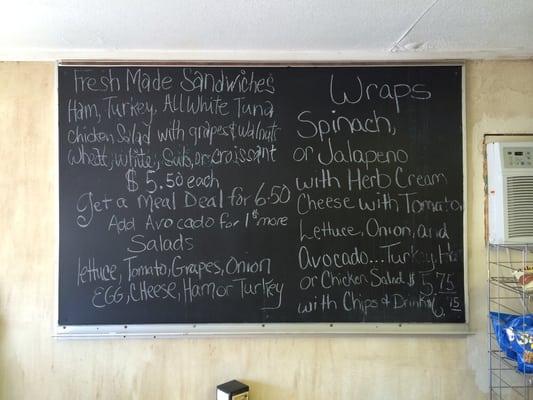 Fresh Made Sandwiches
Ham, Turkey, All White Tuna
chicken Salad with grapes & walnuts
wheat, white, Sub, or croissant
$5.50 each
Get a Meal Deal for 6.50
Add Avocado for 1$ more
Salads
lettuce, Tomato, Grapes, Onion
EGG, CHeese, Ham or Turkey
Wraps
Spinach,
or Jalapeno
with Herb Cream
Cheese with Tomato
Lettuce, Onion, and
Avocado... Turkey, Ham
or Chicken Salad $5.75
with Chips & Drink 6.75